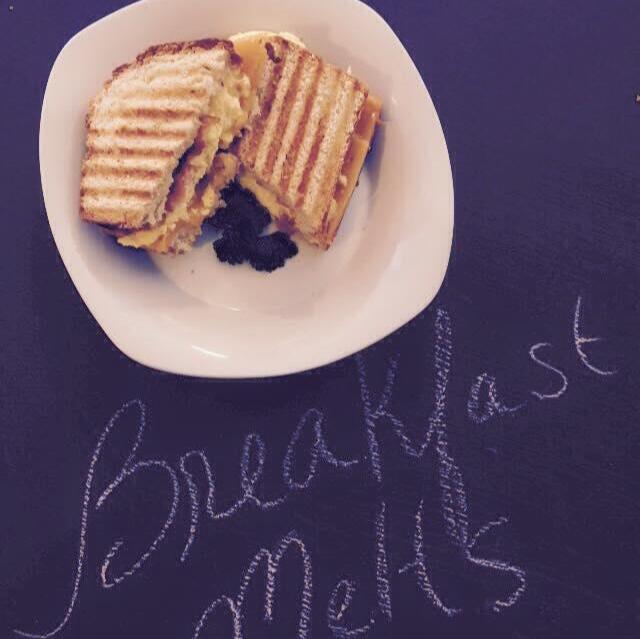 Breakfast
Melts